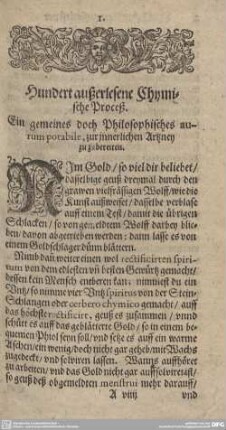 1.
Hundert außerlesene Chymi-
sche Proceß.
Ein gemeines doch Philosophisches au-
rum potabile, zur innerlichen Artzney
zu gebrauchen.
NIm Gold / so viel dir beliebet /
dasselbige geuß dreymal durch den
grawen vielfrässigen Wolff / wie diß
Kunst außweiset / dasselbe verblase
auff einem Test / damit die übrigen
Schlacken / so von gemeldtem Wolff darbey blie-
ben / davon abgetrieben werden: dann lasse es von
einem Goldschlager dünn blättern.
Nimb dañ weiter einen wol rectificirten spiri-
tum von dem edlesten vñ besten Gewürtz gemacht /
dessen kein Mensch entberen kan: nimmest du ein
Vntz / so nimme vier Vntz spiritus von der Stein-
Schlangen oder cerbero chymico gemacht / auff
das höchste rectificirt, geuß es zusammen / vnnd
schütt es auff das geblätterte Gold / so in einem be-
quemen Phiol seyn soll / vnd setze es auff ein warme
Aschen / ein wenig / doch nicht gar geheb / mit Wachs
zugedeckt / vnd solviren lassen. Wanns auffhöret
zu arbeiten / vnd das Gold nicht gar auffsolviret ist /
so geuß deß obgemeldten menstrui mehr darauff /
A vntz vnd